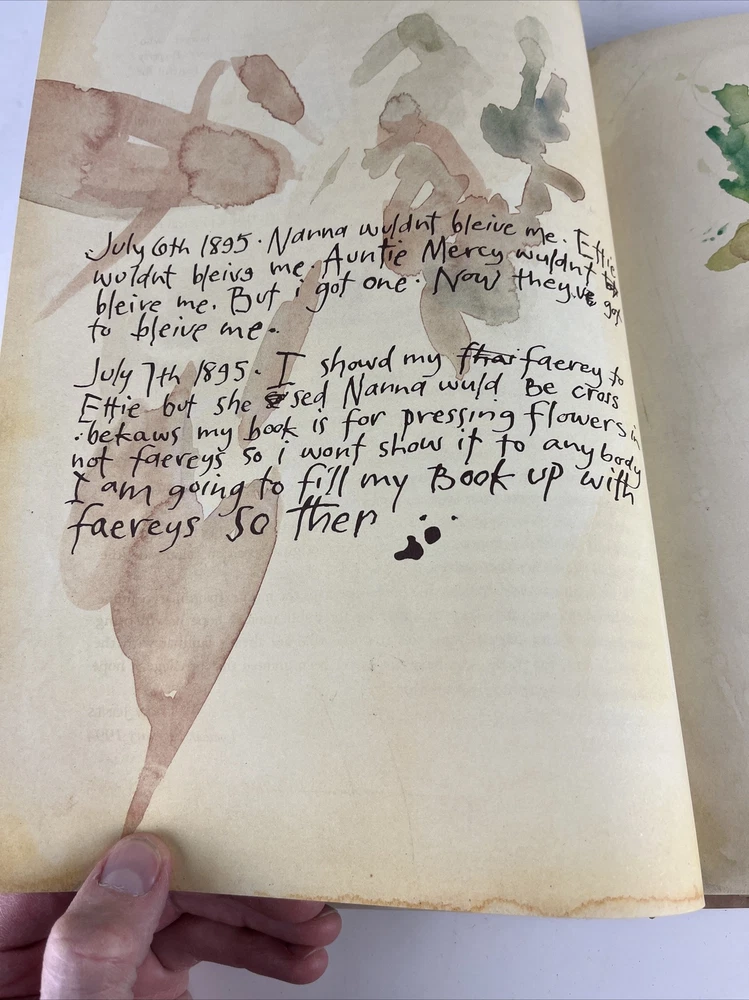 July 6th 1895. Nanna wuldnt bleive me. Effie
wuldnt bleive me. Auntie Mercy wuldnt
bleive me. But i got one. Now theyve got
to bleive me.
July 7th 1895. I showd my faerey to
Effie but she sed Nanna wuld Be cross
bekaws my book is for pressing flowers in
not faereys so i wont show it to anybody
I am going to fill my Book up with
faereys so ther